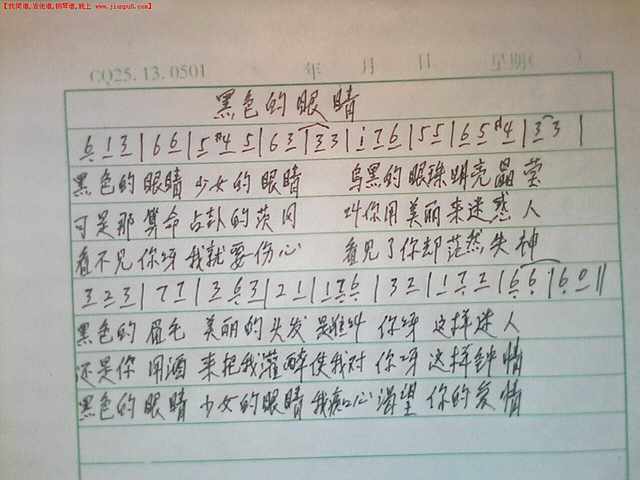 【找简谱,吉他谱,钢琴谱,就上 www.jianpu8.com】
CQ25.13.0501 年 月 日 星期( )
黑色的眼睛
6 1 3 | 6 6 | 5 #4 5 | 6 3 | 3 3 | i 7 6 | 5 5 | 6 5 #4 | 3 3 |
黑色的眼睛 少女的眼睛 乌黑的眼珠明亮晶莹
可是那算命占卦的茨冈 叫你用美丽来迷惑人
看不见你呀我就要伤心 看见了你却茫然失神
3 2 3 | 7 7 | 3 6 3 | 2 1 | 1 7 6 | 3 2 | 1 7 2 | 6 6 | 6 0 ||
黑色的眉毛 美丽的头发 是 叫 你呀 这样迷人
还是你用酒 来把我灌醉使我对 你呀 这样钟情
黑色的眼睛 少女的眼睛我痴心渴望 你的爱情